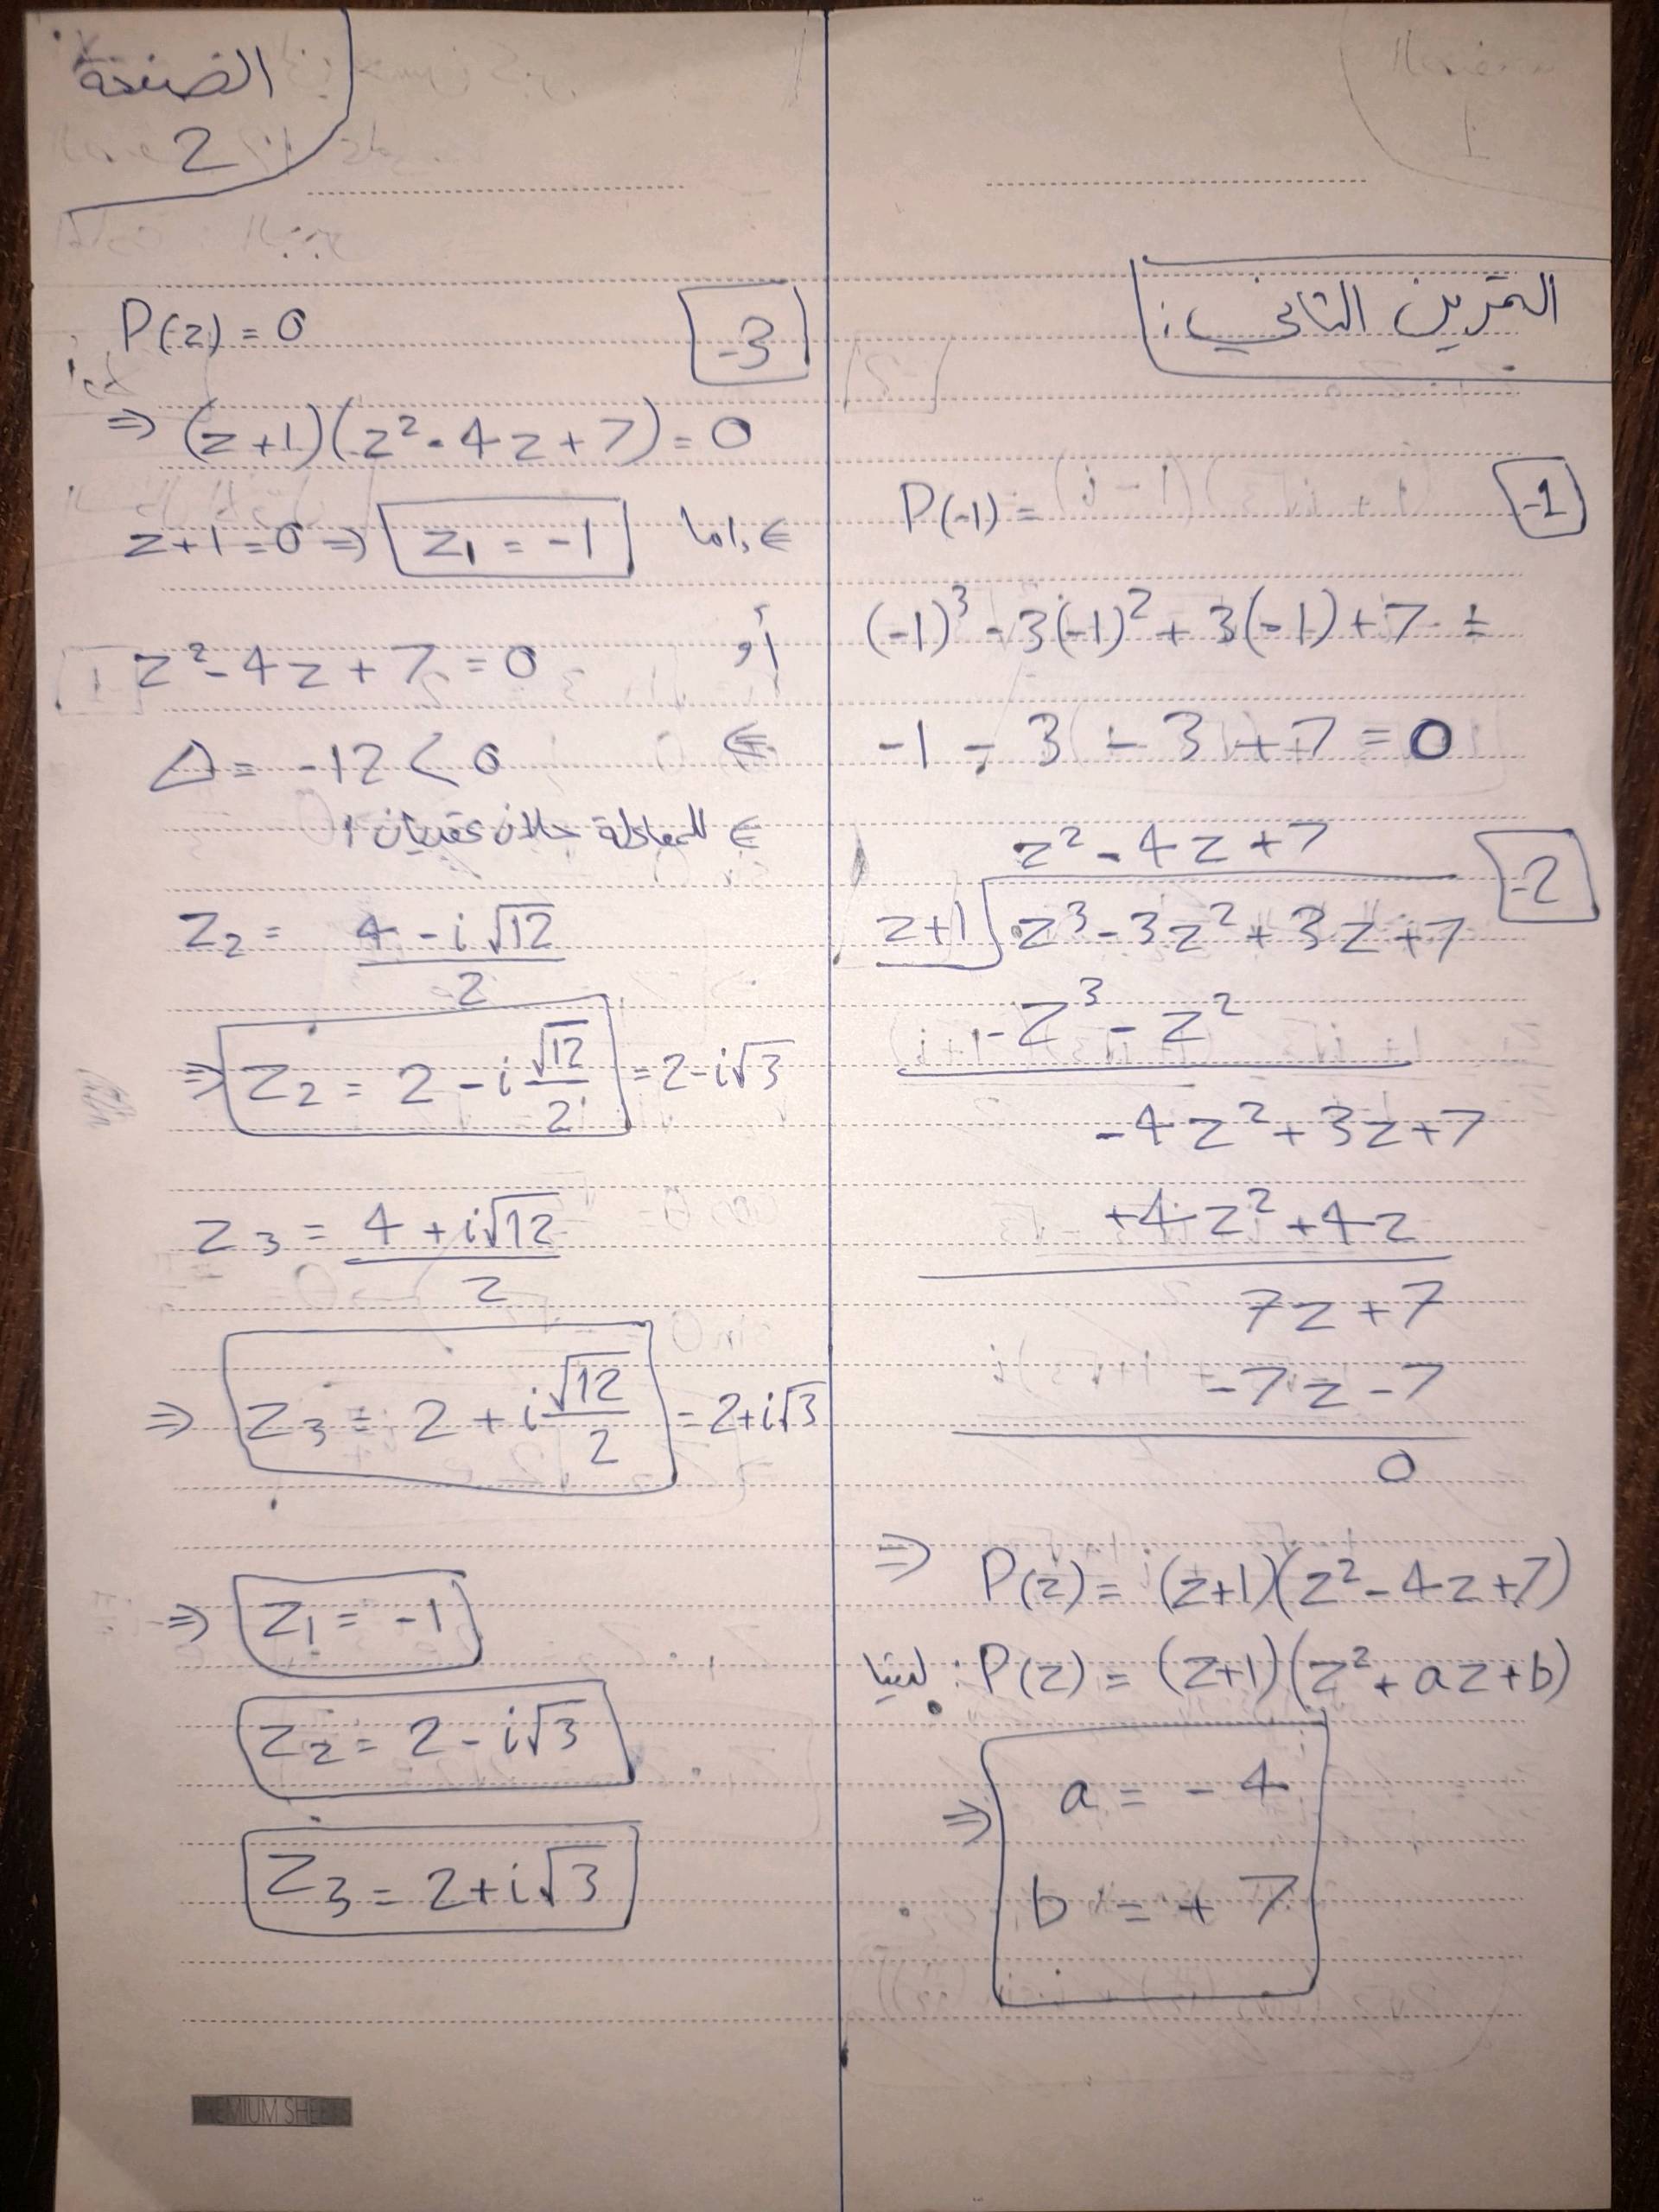 الصفحة
2
1
التمرين الثاني:
-1
P(-1) =
(-1)³ - 3(-1)² + 3(-1) + 7 =
-1 - 3 - 3 + 7 = 0
-2
z² - 4z + 7
z+1 z³ - 3z² + 3z + 7
-z³ - z²
-4z² + 3z + 7
+4z² + 4z
7z + 7
-7z - 7
0
⇒ P(z) = (z+1)(z² - 4z + 7)
لدينا: P(z) = (z+1)(z² + az + b)
⇒ a = -4
b = +7
-3
P(z) = 0
⇒ (z+1)(z² - 4z + 7) = 0
⇐ إما z+1 = 0 ⇒ z₁ = -1
أو z² - 4z + 7 = 0
⇐ Δ = -12 < 0
⇐ للمعادلة حلان عقديان:
z₂ = (4 - i√12)/2
⇒ z₂ = 2 - i √12/2 = 2 - i√3
z₃ = (4 + i√12)/2
⇒ z₃ = 2 + i √12/2 = 2 + i√3
⇒ z₁ = -1
z₂ = 2 - i√3
z₃ = 2 + i√3